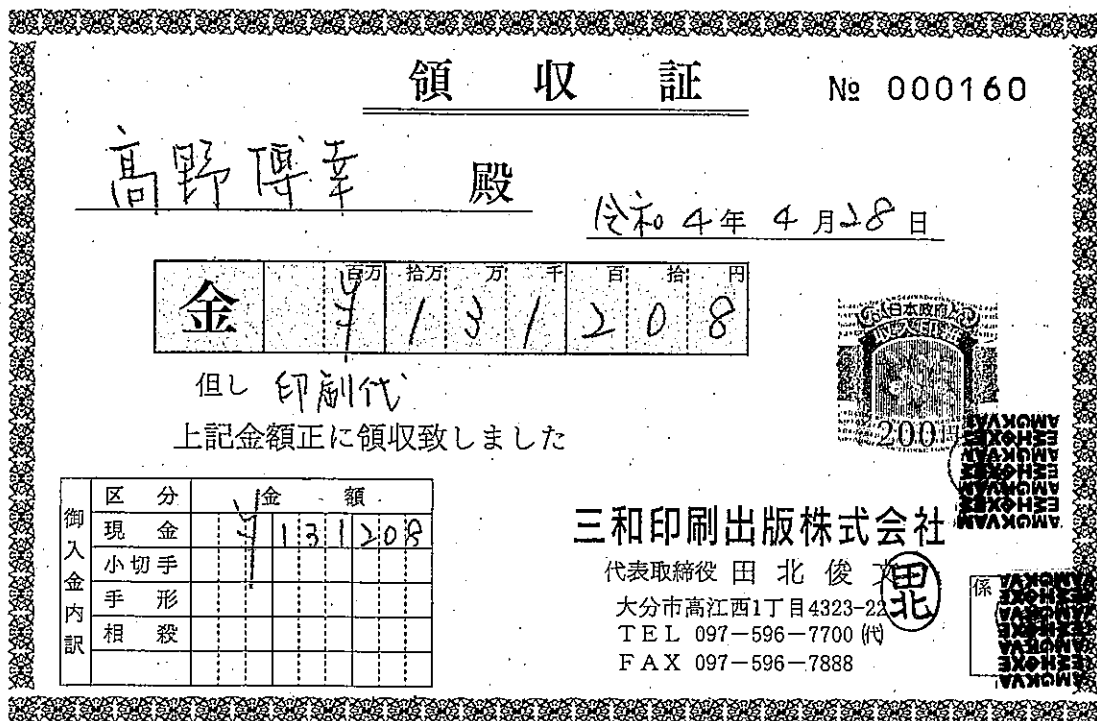 領収証
№ 000160
高野博幸 殿
令和 4年 4月28日
百万 拾万 万 千 百 拾 円
金 ¥131208
但し 印刷代
上記金額正に領収致しました
日本政府
200円
御入金内訳
区分 金額
現金 ¥131208
小切手
手形
相殺
三和印刷出版株式会社
代表取締役 田北俊
大分市高江西1丁目4323-22
TEL 097-596-7700 ㈹
FAX 097-596-7888
田北
係